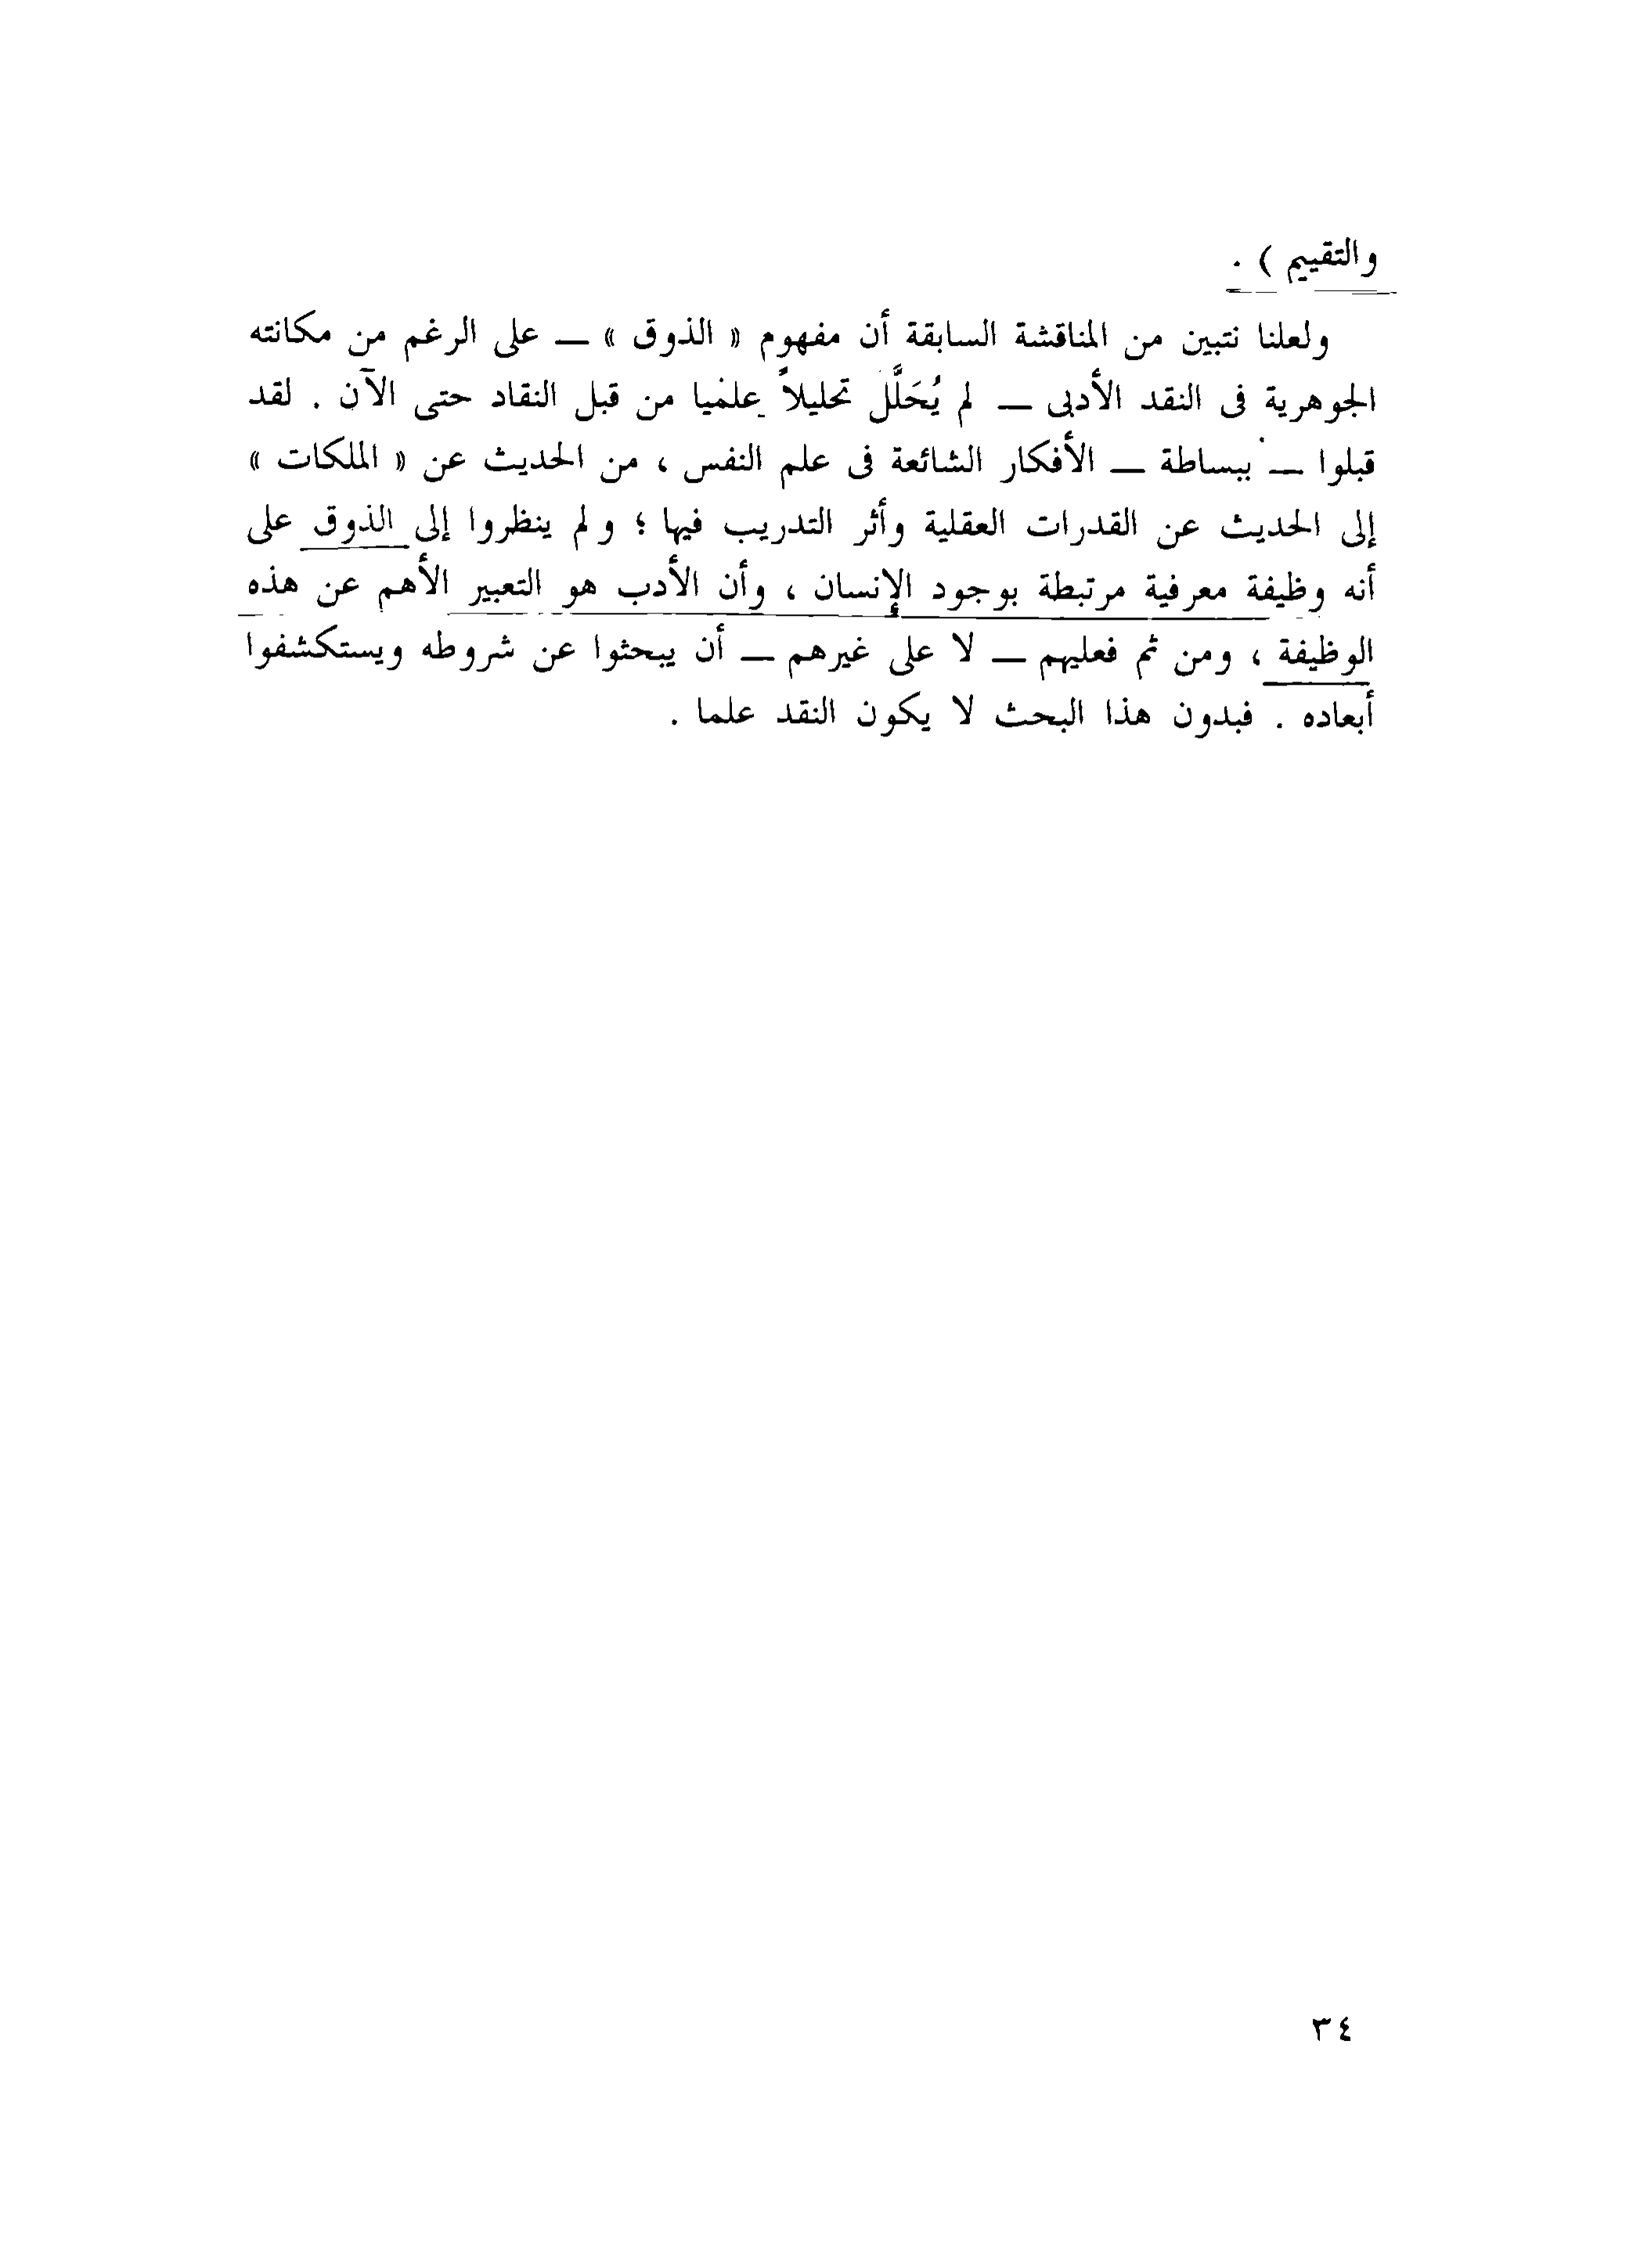 والتقييم ) .
ولعلنا نتبين من المناقشة السابقة أن مفهوم « الذوق » — على الرغم من مكانته
الجوهرية فى النقد الأدبى — لم يُحَلَّل تحليلاً علميا من قبل النقاد حتى الآن . لقد
قبلوا — ببساطة — الأفكار الشائعة فى علم النفس ، من الحديث عن « الملكات »
إلى الحديث عن القدرات العقلية وأثر التدريب فيها ؛ ولم ينظروا إلى الذوق على
أنه وظيفة معرفية مرتبطة بوجود الإنسان ، وأن الأدب هو التعبير الأهم عن هذه
الوظيفة ، ومن ثم فعليهم — لا على غيرهم — أن يبحثوا عن شروطه ويستكشفوا
أبعاده . فبدون هذا البحث لا يكون النقد علما .
٣٤